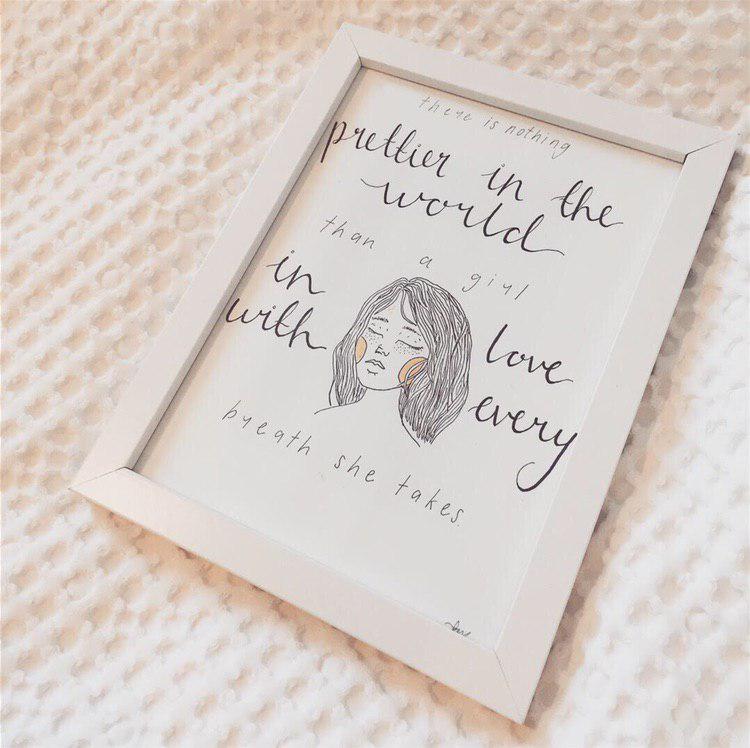 there is nothing
prettier in the
world
than a girl
in love
with every
breath she takes.